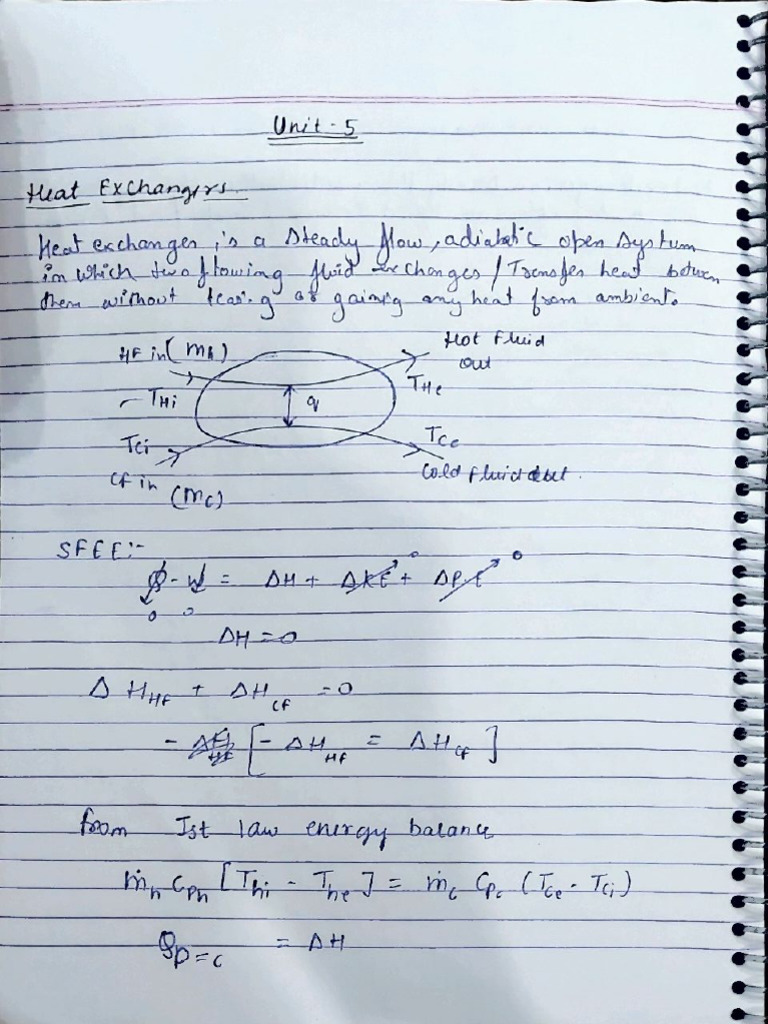 Unit - 5
Heat Exchangers.
Heat exchanger is a steady flow, adiabatic open system
in which two flowing fluid exchanges / Transfer heat between
them without or gaining any heat from ambient.
HF in (mh) Hot Fluid
out
THi q THe
Tci Tce
CF in Cold fluid
(mc)
SFEE:-
Q - W = ΔH + ΔKE + ΔPE
0 0 0 0
ΔH = 0
Δ HHF + ΔHCF = 0
- ΔHHF [- ΔHHF = ΔHCF]
from Ist law energy balance
ṁh Cph [Thi - The] = ṁc Cpc (Tce - Tci)
QP=C = ΔH